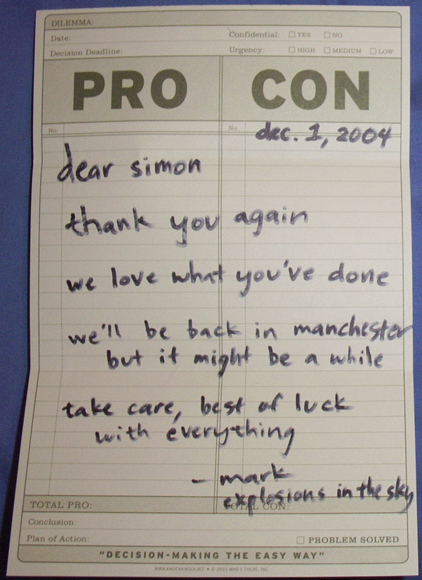 DILEMMA:
Date:
Confidential: □ YES □ NO
Decision Deadline:
Urgency: □ HIGH □ MEDIUM □ LOW
PRO CON
No. No.
dec. 1, 2004
dear simon
thank you again
we love what you've done
we'll be back in manchester
but it might be a while
take care, best of luck
with everything
- mark
explosions in the sky
TOTAL PRO: TOTAL CON:
Conclusion:
Plan of Action: □ PROBLEM SOLVED
"DECISION-MAKING THE EASY WAY"